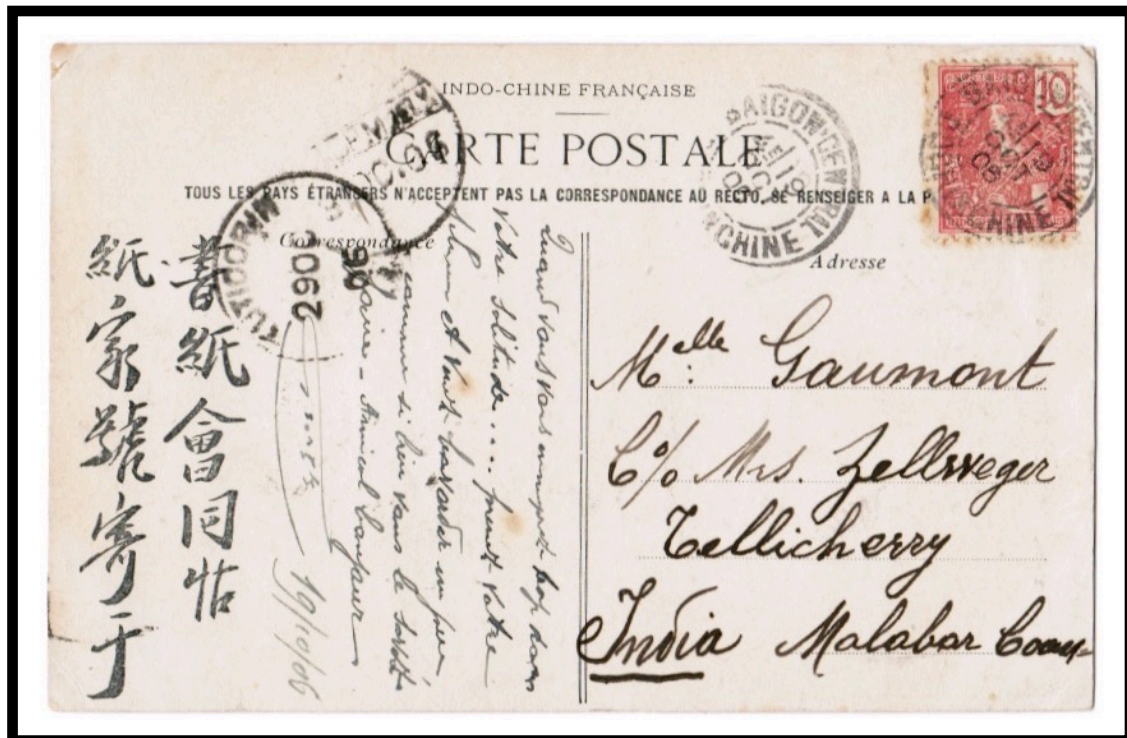 INDO-CHINE FRANÇAISE
CARTE POSTALE
TOUS LES PAYS ÉTRANGERS N'ACCEPTENT PAS LA CORRESPONDANCE AU RECTO, SE RENSEIGER A LA P
Correspondance
Adresse
SAIGON-CENTRAL
COCHINCHINE
10
SAIGON CENTRAL
COCHINCHINE
TUTICORIN
OC 06
書紙會同
紙家號寄于
Quand vous vous ennuyez trop dans
Votre Solitude.... prenez votre
plume et venez bavarder un peu
comme si bien vous le savez
faire - Amical bonjour
19/10/06
Melle Gaumont
C/o Mrs. Zellweger
Tellicherry
India Malabar Coast